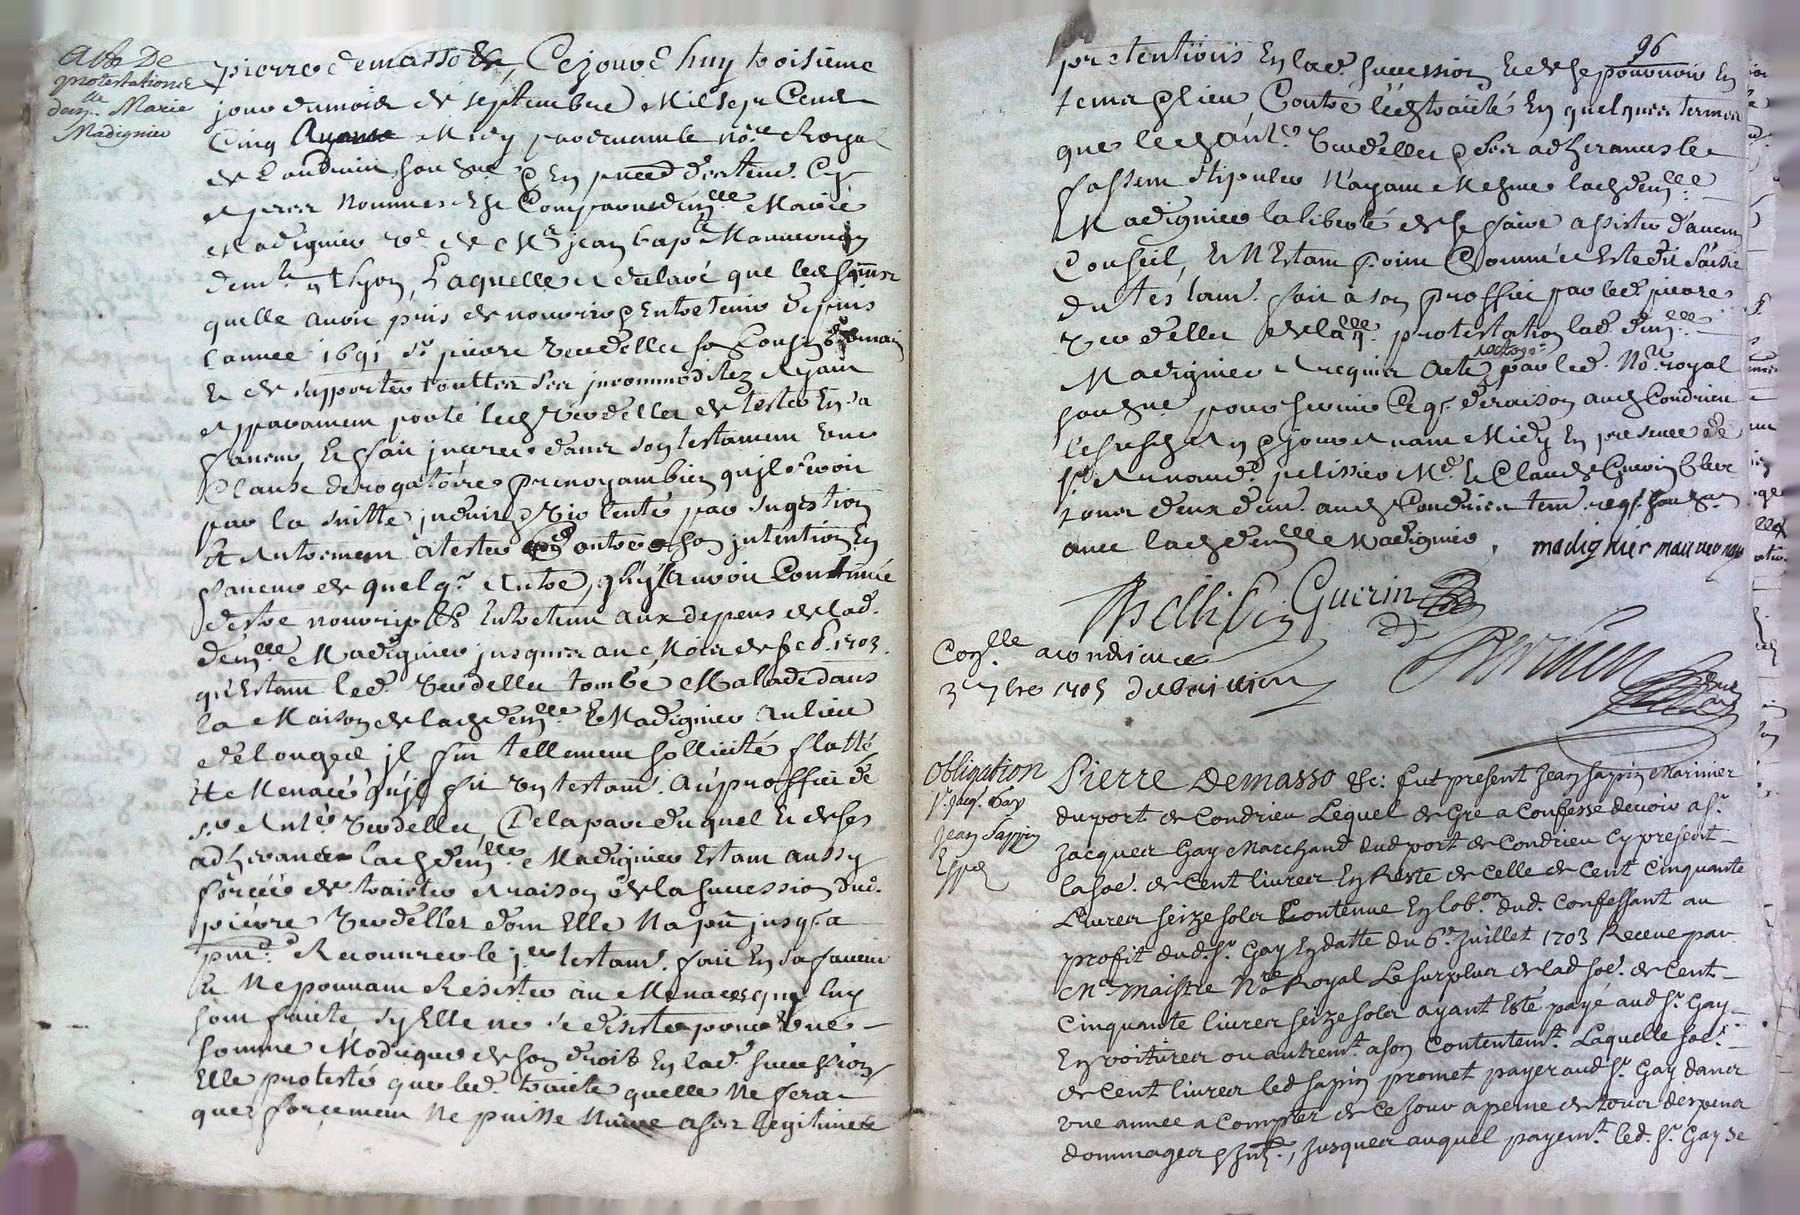 Acte De
protestation
dem.lle Marie
Madignier
pierre demasso &c, Cejourd'huy troisieme
jour du mois de septembre Mil sept Cent
Cinq Avant Midy pardevant le no.re Royal
de Condrieu sous.né & En p.nce des tem. Cy
apres nommes Est Comparue dem.lle Marie
Madignier v.e de M.r jean bap.te Mauvernay
dem.te a Lyon, Laquelle a declaré que les soins
quelle avoit pris de nourrir & Entretenir depuis
l'annee 1691 S.r pierre Verdellet son Cousin
Et de supporter touttes ses incommoditez Ayant
apparament porté led. Verdellet de tester En sa
faveur Et fait inserer dans son testament une
Clause derogatoire prevoyant bien qu'il seroit
par la suitte induit & violenté par sugestion
Et Autrement a tester contre son intention En
faveur de quelq. Autre, qu'il Auroit Continué
d'estre nourri & Entretenu aux depens de lad.
dem.lle Madignier jusques au Mois de fed. 1703.
qu'Estant led. Verdellet tombé Malade dans
la Maison de lad. dem.lle Madignier Au lieu
de longes il fut tellement sollicité flatté
Et Menacé qu'il fit un testam.t Au proffit de
S.r Ant.e Verdellet, De la part duquel Et de ses
adherances lad. dem.lle Madignier Estant aussy
forcée de traiter a raison de la succession dud.
pierre Verdellet dont Elle Na pu jusq.s a
p.nt Recouvrer le 1.er testam.t fait En sa faveur
Et Ne pouvant Resister au Menaces que luy
sont faite, sy Elle ne se desiste pour une
somme Modique de son droit En lad. succession
Elle proteste que led. traite quelle Ne fera
que forcement Ne puisse Nuire a ses legitimes
96
pretentions En lad. succession Et de se pourvoir En
tems & lieu Contre led. traité En quelques termes
que led. Ant.e Verdellet & ses adherances le
fassent stipuler N'ayant Mesme lad. dem.lle
Madignier la liberté de se faire assister d'aucun
Conseil, Et N'Estant point Comme Este dit saisie
du testam.t fait à son proffit par led. pierre
Verdellet de laq.lle protestation lad. dem.lle
Madignier a requis Acte octroyé par led. No.re royal
sous.né pour servir Ce q. de raison aud. Condrieu
les susd. an & jour avant Midy En presence de
S.r Arnaud pelissier M.d Et Claude Guerin Clerc
tous deux dem. aud. Condrieu tem. req. sous.nes
avec lad. dem.lle Madignier.
madignier mauvernay
Pellissier Guerin
Con.lle a condrieu le
3 7bre 1705 Dubuisson
Obligation
S.r Jacq. Gay
Jean Sappin
Expé
Pierre Demasso &c: fut present Jean Sapin Marinier
du port de Condrieu Lequel de Gré a Confessé devoir a S.r
Jacques Gay Marchand dud port de Condrieu Cy present
la soe. de Cent livres En Reste de Celle de Cent Cinquante
Livres seize sols Contenue En lob.on dud. Confessant au
profit dud. S.r Gay En datte du 6.e Juillet 1703 Receue par
M.e Maistre No.re Royal Le surplus de lad soe. de Cent
Cinquante livres seize sols ayant Esté payé aud S.r Gay
En voitures ou autrem.t a son Contentem.t Laquelle soe.
de Cent livres led sapin promet payer aud S.r Gay dans
une annee a Compter de Ce Jour a peine de tous despens
dommages & Int., Jusques auquel payem.t led. S.r Gay se